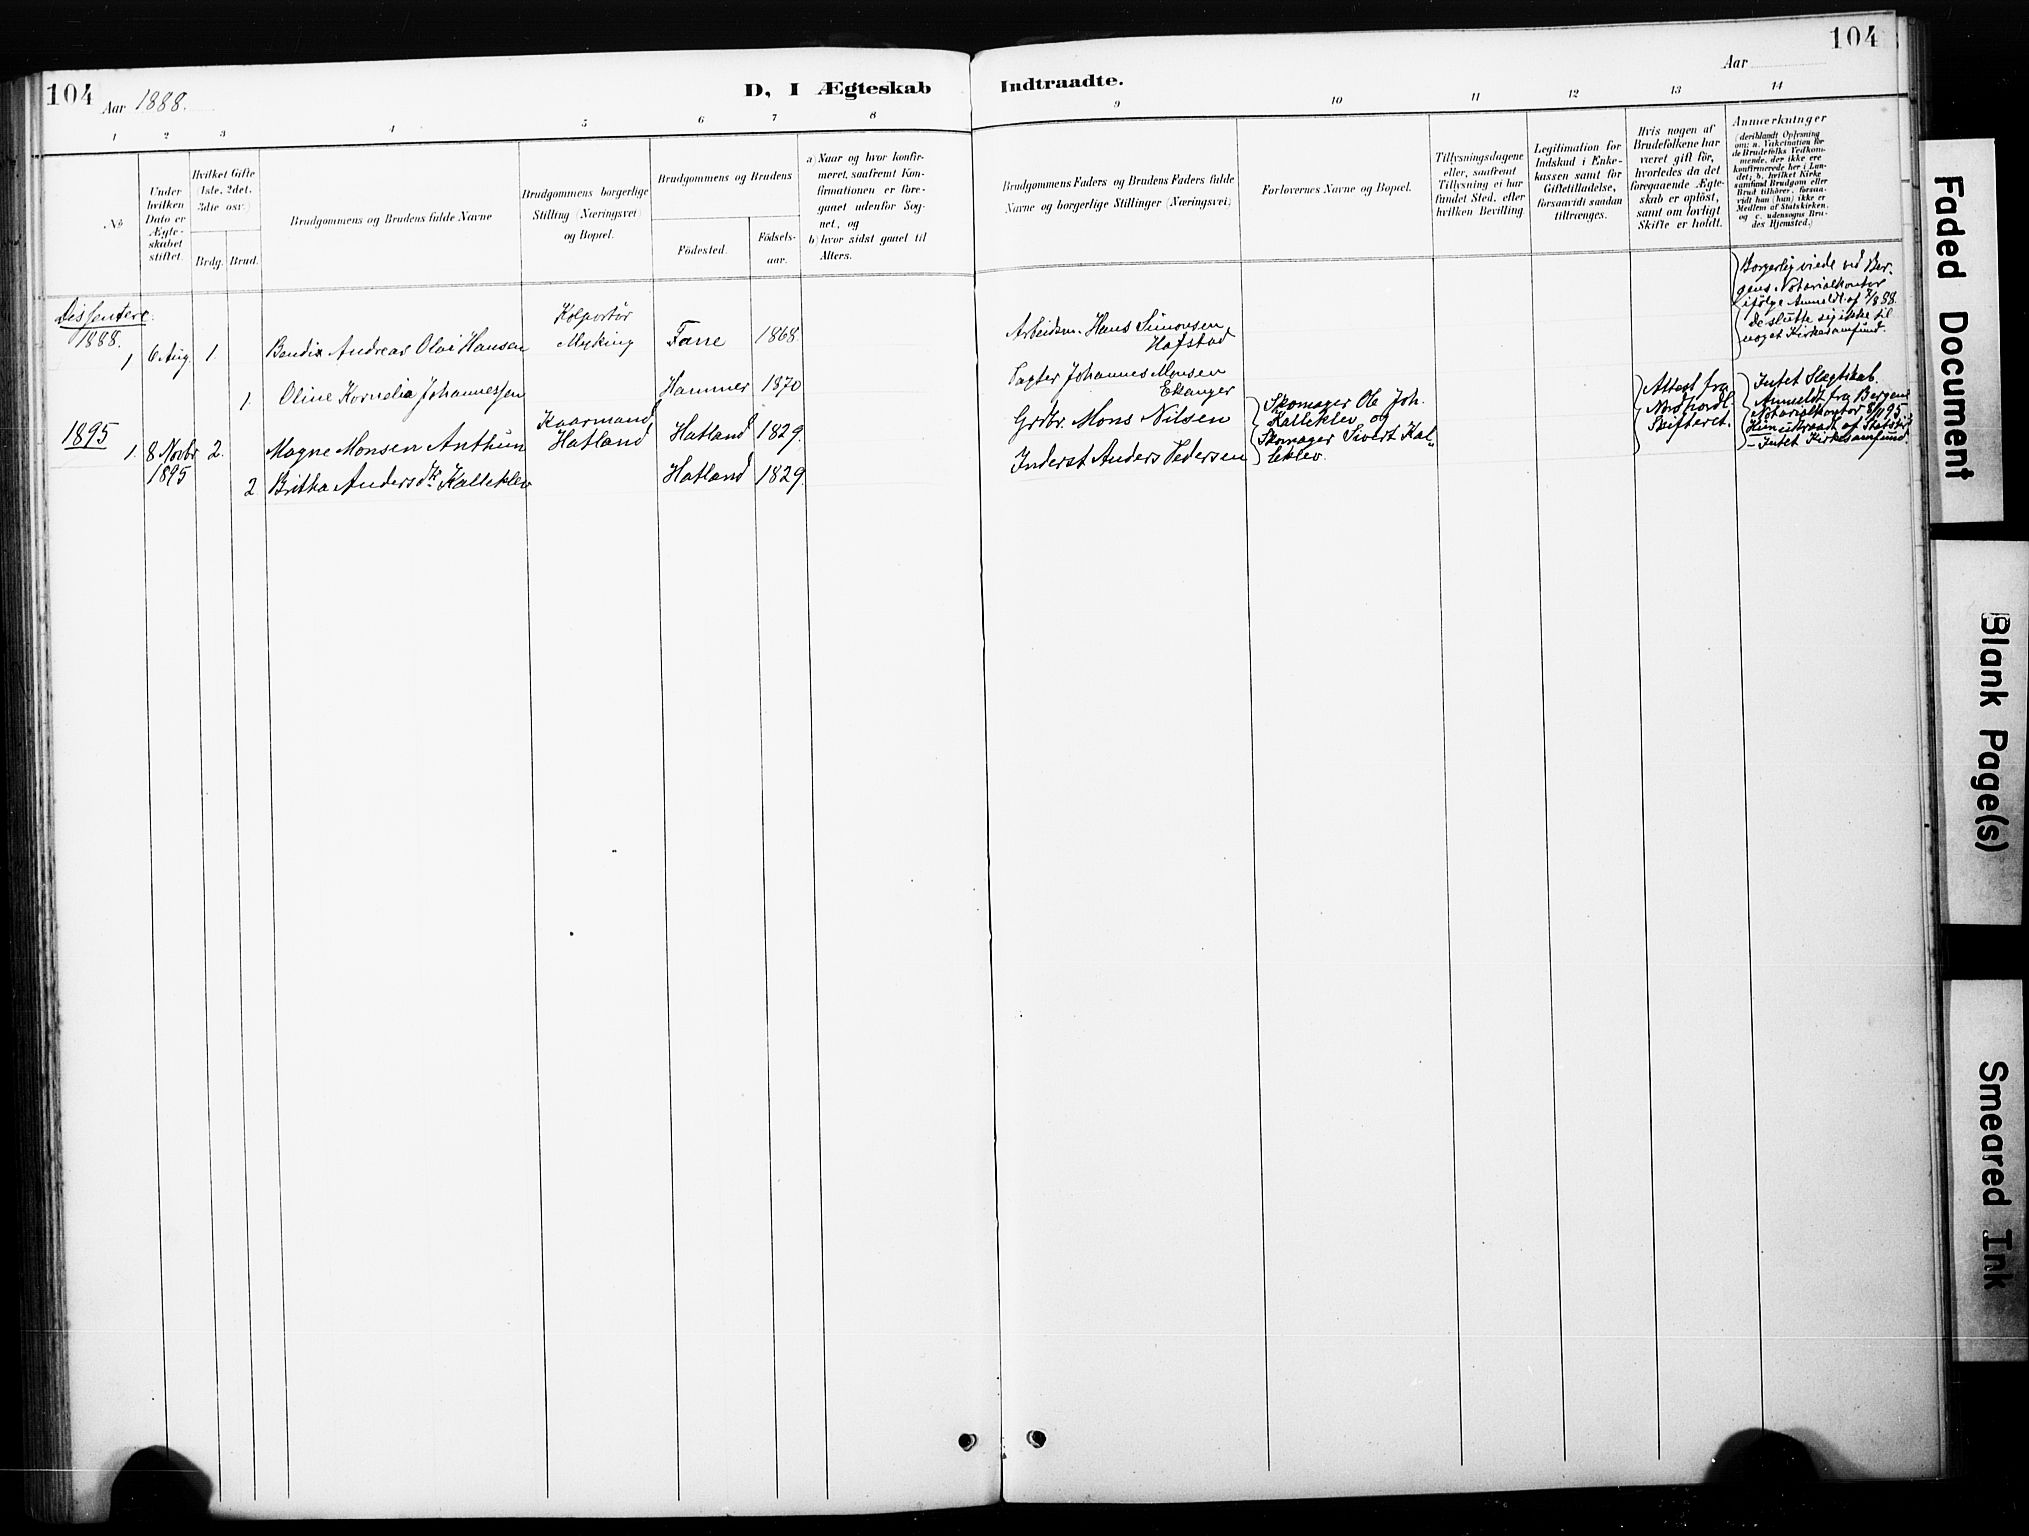 104
104
Aar 1888.
D, I Ægteskab
Indtraadte.
Aar
1 2 3 4 5 6 7 8
9 10 11 12 13 14
No
Under
hvilken
Dato er
Ægte-
skabet
stiftet.
Hvilket Gifte
(1ste, 2det,
3die osv.)
Brdg.
Brud.
Brudgommens og Brudens fulde Navne
Brudgommens borgerlige
Stilling (Næringsvei)
og Bopæl.
Brudgommens og Brudens
Födested.
Födsels-
aar.
a) Naar og hvor konfir-
meret, saafremt Kon-
firmationen er fore-
gaaet udenfor Sog-
net, og
b) hvor sidst gaaet til
Alters.
Brudgommens Faders og Brudens Faders fulde
Navne og borgerlige Stillinger (Næringsvei)
Forlovernes Navne og Bopæl.
Tillysningsdagene
eller, saafremt
Tillysning ei har
fundet Sted, efter
hvilken Bevilling.
Legitimation for
Indskud i Enke-
kassen samt for
Giftetilladelse,
forsaavidt saadan
tiltrænges.
Hvis nogen af
Brudefolkene har
været gift för,
hvorledes da det
foregaaende Ægte-
skab er oplöst,
samt om lovligt
Skifte er holdt.
Anmerkninger
(deriblandt Oplysning
om: a. Vakcination for
de Brudefolks Vedkom-
mende, der ikke ere
konfirmerede her i Lan-
det; b. hvilket Kirke
samfund Brudgom eller
Brud tilhörer, forsaa-
vidt han (hun) ikke er
Medlem af Statskirken,
og c. udensogns Bru-
des Hjemsted.)
Dissentere.
1888.
1 6 Aug. 1. Bendix Andreas Olai Hansen
Kolportør
Myking
Fane 1868
Arbeidsm. Hans Simonsen
Hafstad
Borgerlig viede ved Ber-
gens Notarialkontor
ifølge Anmeldt. af 7/8 88.
De slutte sig ikke til
noget Kirkesamfund.
1. Oline Kornelia Johannessen
Hammer 1870
Johannes Monsen
Eknger
1895
1. 8 Novbr
1895
2. Magne Monsen Anthun
Kaarmand,
Hatland
Hatland 1829.
Grbr. Mons Nilsen
Skomager Ole Joh.
Kalleklev og
Skomager Sivert Kal-
leklev.
Attest fra
Nordhordl.
Skifteret.
Intet Slægtskab.
Anmeldt fra Bergens
Notarialkontor 8/11 95.
Hun udtraadt af Statsk.
- Intet Kirkesamfund.
2 Britha Andersdtr. Kalleklev
Hatland 1829.
Inderst Anders Pedersen
Faded Document
Blank Page(s)
Smeared Ink